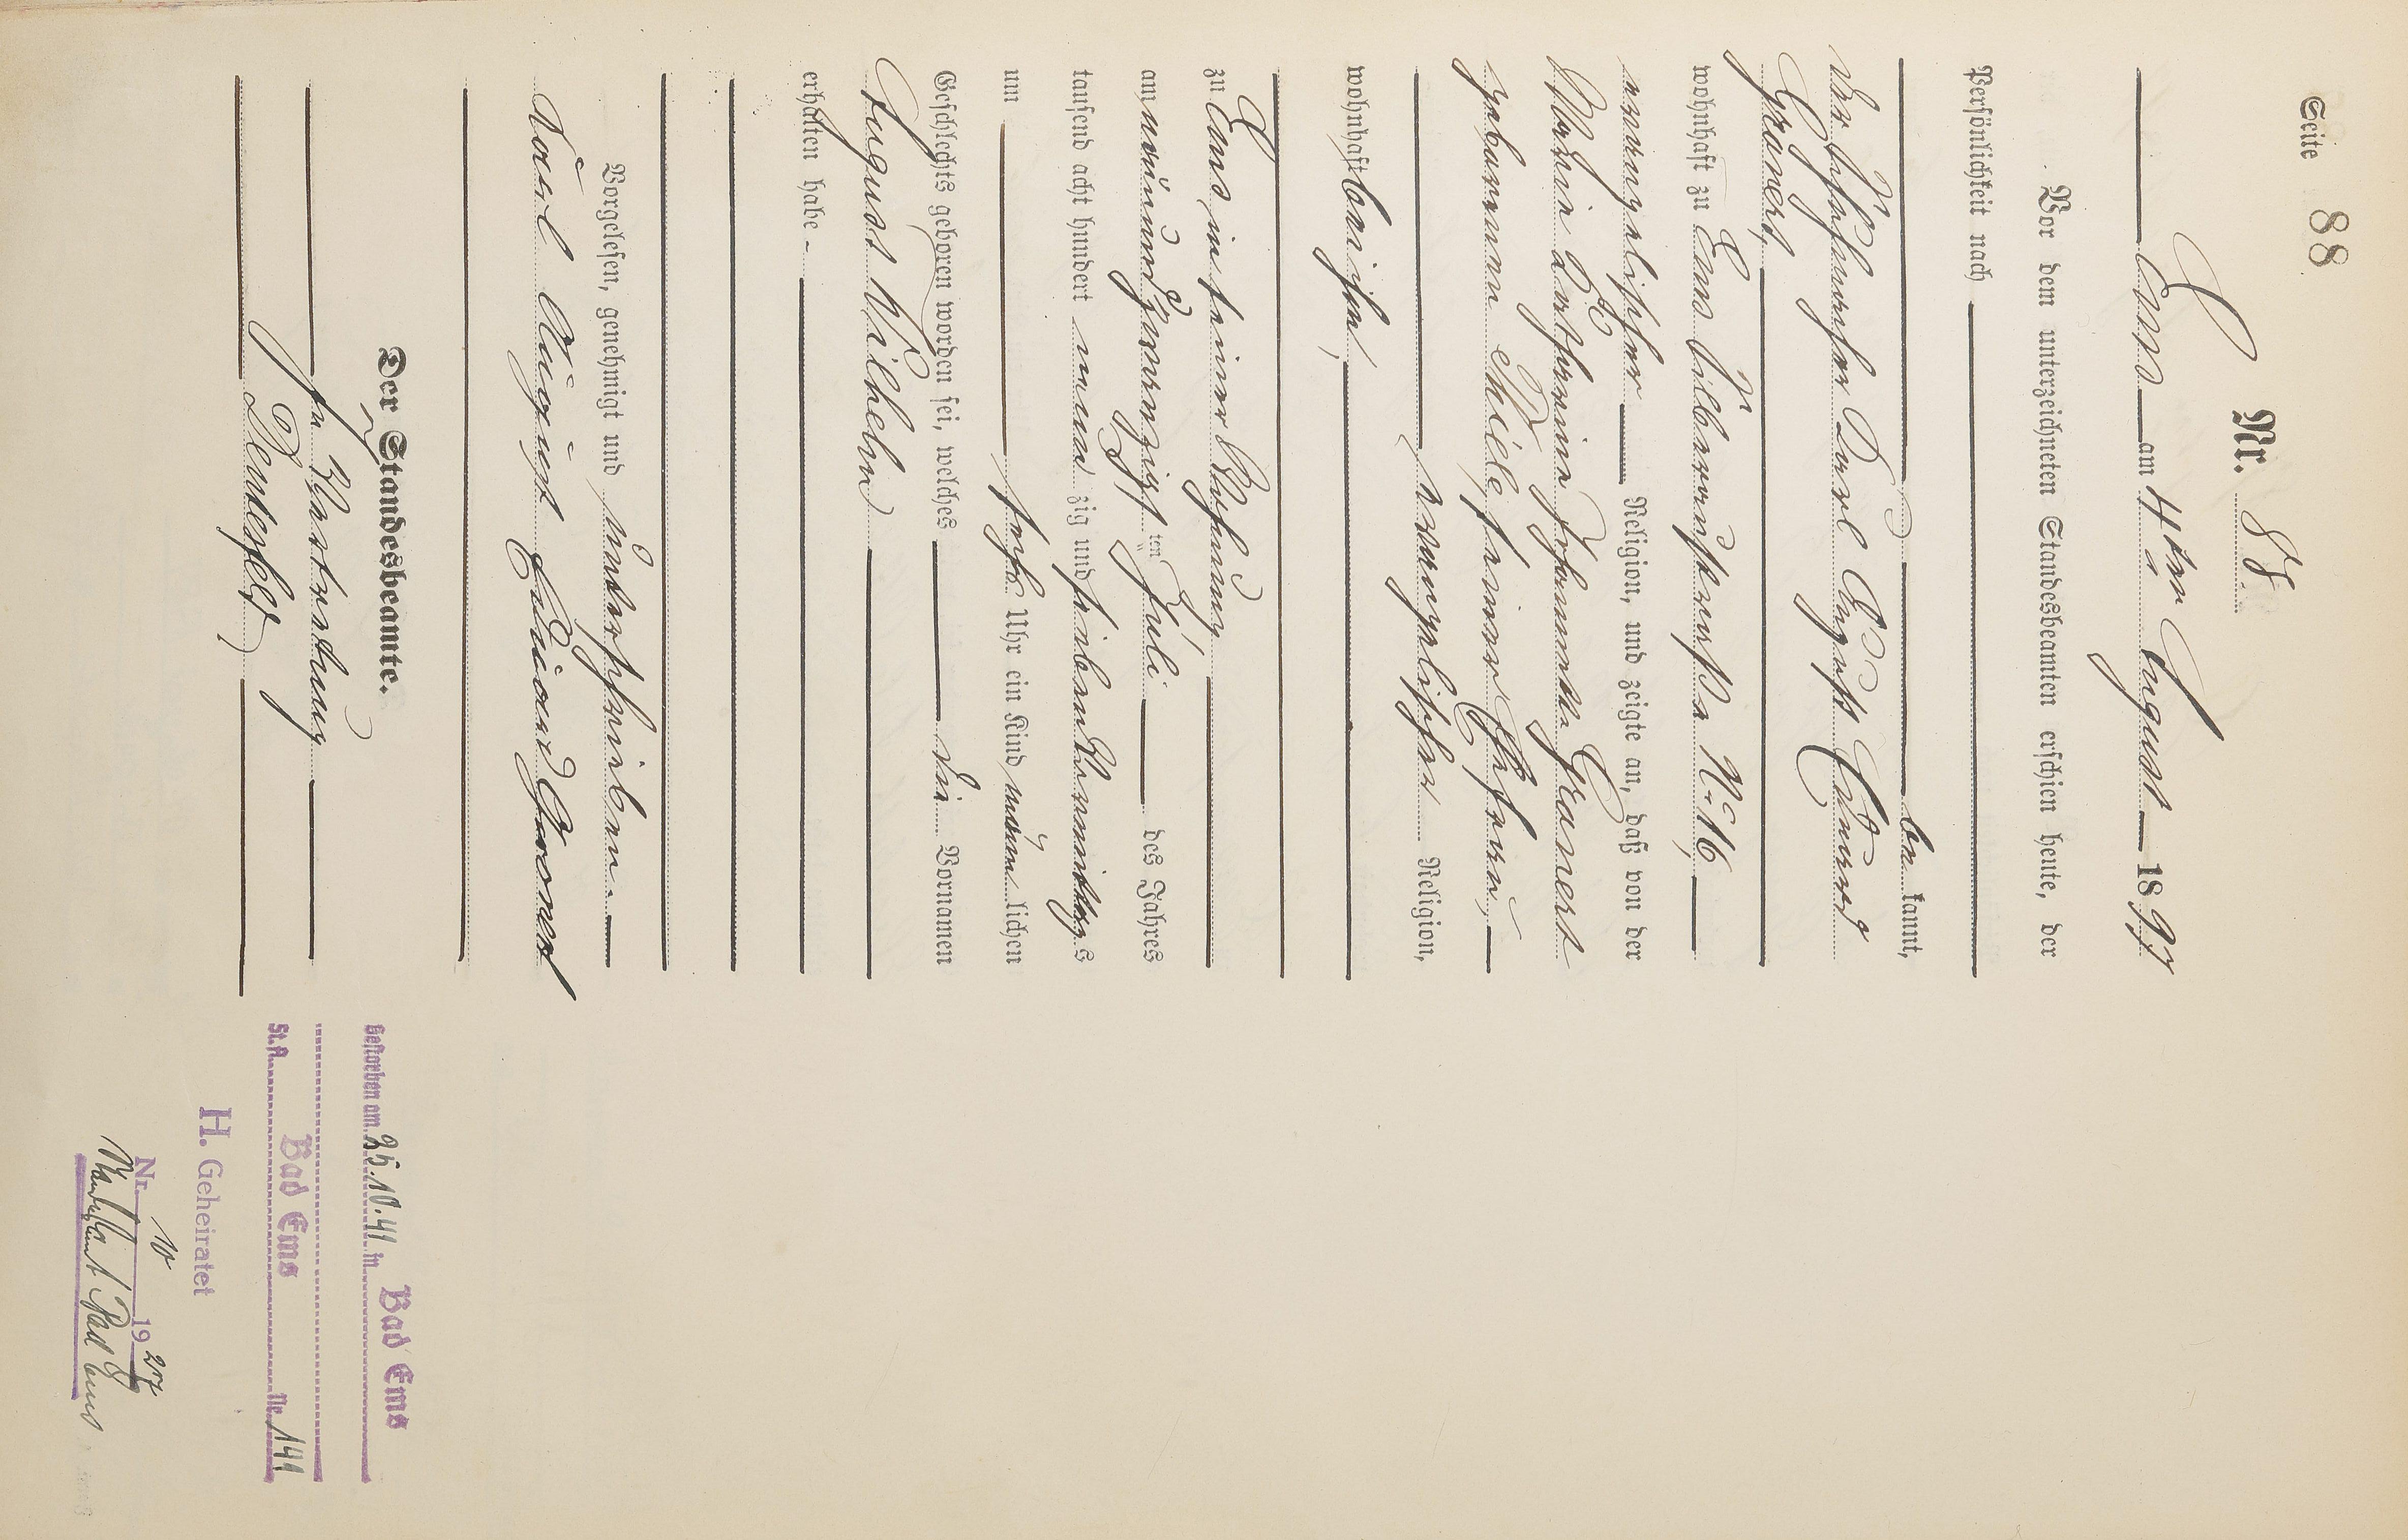 Seite 88
Nr. 88.
Ems am 4ten August 1897
Vor dem unterzeichneten Standesbeamten erschien heute, der
Persönlichkeit nach
be kannt,
der Tüncher Karl August Eduard
Granert,
wohnhaft zu Ems, Silberaustraße No 16,
evangelischer Religion, und zeigte an, daß von der
Marie Katharina Johannette Granert
geborenen Thiele, seiner Ehefrau,
evangelischer Religion,
wohnhaft bei ihm,
zu Ems, in seiner Wohnung
am neunundzwanzigsten Juli des Jahres
tausend acht hundert neun zig und sieben Vormittags
um fünf Uhr ein Kind männ lichen
Geschlechts geboren worden sei, welches die Vornamen
August Wilhelm
erhalten habe.
Vorgelesen, genehmigt und unterschrieben.
Karl August Eduard Granert
Der Standesbeamte.
In Vertretung
Gestorben am 25.10.41 in Bad Ems
St.A. Bad Ems Nr. 144
H. Geheiratet
Nr. 10 1927
Standesamt Bad Ems